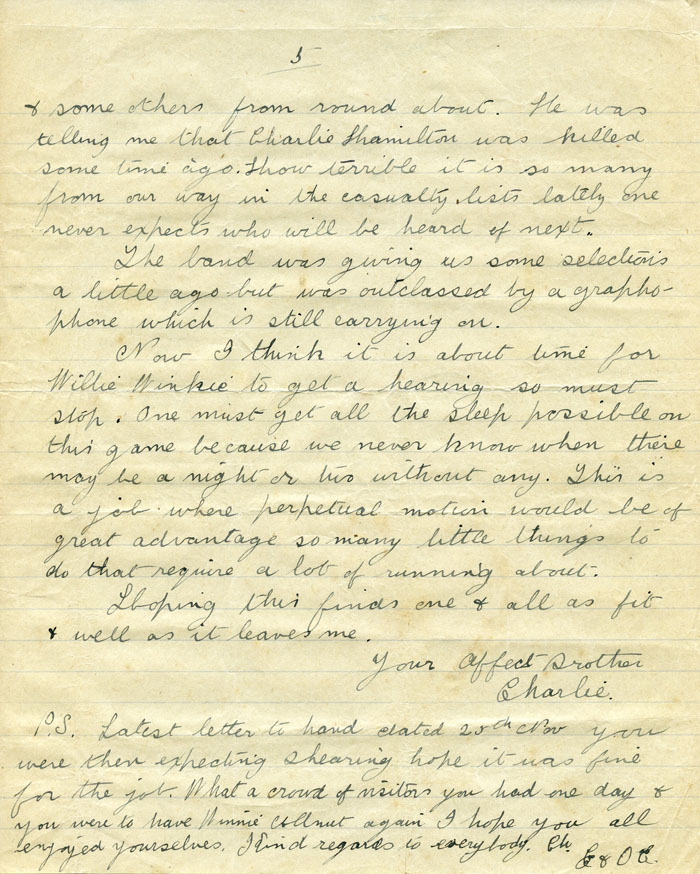 5
& some others from round about. He was
telling me that Charlie Hamilton was killed
some time ago. How terrible it is so many
from our way in the casualty lists lately one
never expects who will be heard of next.
The band was giving us some selections
a little ago but was outclassed by a grapho-
phone which is still carrying on.
Now I think it is about time for
Willie Winkie to get a hearing so must
stop. One must get all the sleep possible on
this game because we never know when there
may be a night or two without any. This is
a job where perpetual motion would be of
great advantage so many little things to
do that require a lot of running about.
Hoping this finds one & all as fit
& well as it leaves me.
Your Affect Brother
Charlie.
P.S. Latest letter to hand dated 20th Nov you
were then expecting shearing hope it was fine
for the job. What a crowd of visitors you had one day &
you were to have Winnie again I hope you all
enjoyed yourselves. Kind regards to everybody. Ch
E & O E.